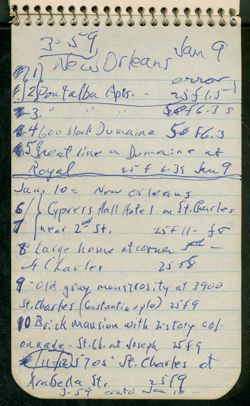 3-59
Jan 9
New Orleans
1)
error
2) Pontalba Apts. - 25 f 6.5
3. " " " f 6.3
4 - 600 block Dumaine f 6.3
5 line on Dumaine at
Royal 25 f 6.3 Jan 9
Jan. 10 - New Orleans
6/ } Cypress Hall Hotel on St. Charles
7 near 2nd St. 25 f 11 - f 8
8 - Large home at corner
St Charles 25 f 8
9 - Old gray monstrosity at 3900
St. Charles (Constantinople) 25 f 9
10 Brick mansion with 2 story col-
onnade - St. Ch. at Joseph 25 f 9
11-12 5705 St. Charles at
Arabella St. 25 f 9
3-59 contd Jan 10